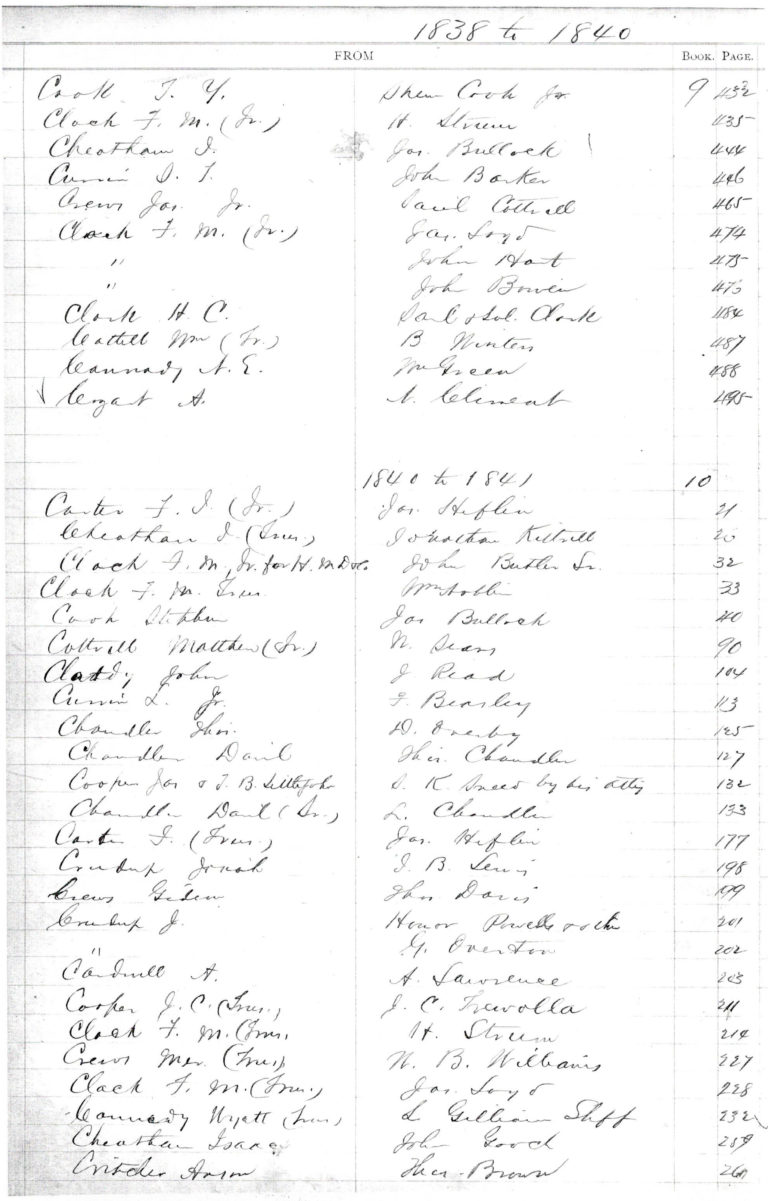 1838 to 1840
FROM BOOK. PAGE.
Cook T. Y. Shem Cook Jr. 9 432
Clack F. M. (Tr.) H. Strum 435
Cheatham I. Jas. Bullock 444
Currin D. T. John Barker 446
Crews Jas. Jr. Saml Cottrell 465
Clack F. M. (Tr.) Jas. Loyd 474
" John Hart 475
" John Bowen 475
Clark H. C. Saml & Sol. Clark 484
Cattell Wm (Tr.) B Winters 487
Cannady N. E. Wm Green 488
Cozart A. N. Climent 495
1840 to 1841 10
Carter F. I. (Tr.) Jas. Heflin 21
Cheatham I. (Trus.) Jonathan Kittrell
Clack F. M. Tr. for H. M. D & Co. John Butler Sr. 32
Clack F. M. Trus. Wm 33
Cook Stephen Jas Bullock 40
Cottrell Matthew (Tr.) W. Sears 90
John J Read 104
Currin L. Jr. F. Beasley 113
Chandler Thos. D. Overby 125
Chandler Danl Thos. Chandler 127
Cooper Jas & T. B. Littlejohn S. K. Sneed by his atty 132
Chandler Danl (Tr.) L. Chandler 133
Carter F. (Trus.) Jas. Heflin 177
Crudup Josiah I. B. Lewis 198
Crews Gideon Thos Davis 199
Crudup J. Honor Powell & othr 201
" G. Overton 202
Cardwell A. A. Lawrence 203
Cooper J. C. (Trus.) J. C. Trewolla 211
Clack F. M. (Trus. H. Strum 214
Crews (Trus) W. B. Williams 227
Clack F. M. (Trus.) Jas. Loyd 228
Cannady Wyatt (Trus) L Gilliam Shff 232
Cheatham Isaac John Gooch 259
Critcher Anson Thos. Brown 260